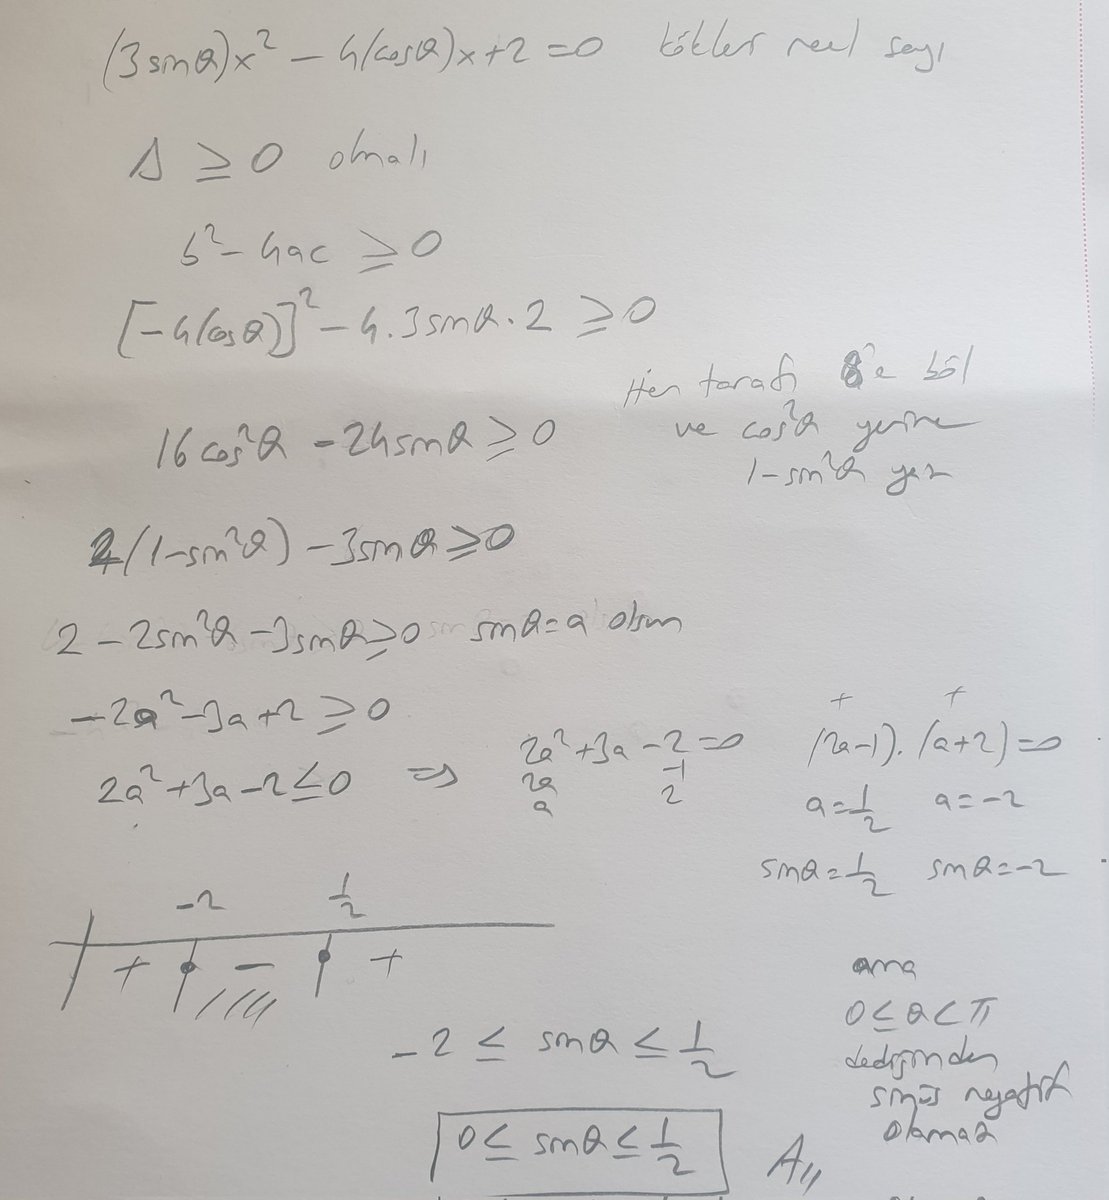 (3sinθ)x² - 4(cosθ)x+2=0 kökler reel sayı
Δ ≥ 0 olmalı
b² - 4ac ≥ 0
[-4(cosθ)]² - 4.3sinθ.2 ≥ 0
Her tarafı 8'e böl
ve cos²θ yerine
1-sin²θ yaz
16cos²θ - 24sinθ ≥ 0
2(1-sin²θ) - 3sinθ ≥ 0
2 - 2sin²θ - 3sinθ ≥ 0 sinθ=a olsun
-2a² - 3a + 2 ≥ 0
+ +
2a² + 3a - 2 ≤ 0 ⇒ 2a² + 3a - 2 = 0 (2a-1).(a+2)=0
2a -1
a 2
a=1/2 a=-2
sinθ=1/2 sinθ=-2
-2 1/2
+ - +
ama
0≤θ<π
dediğinden
sinüs negatif
olamaz
-2 ≤ sinθ ≤ 1/2
0 ≤ sinθ ≤ 1/2 A//